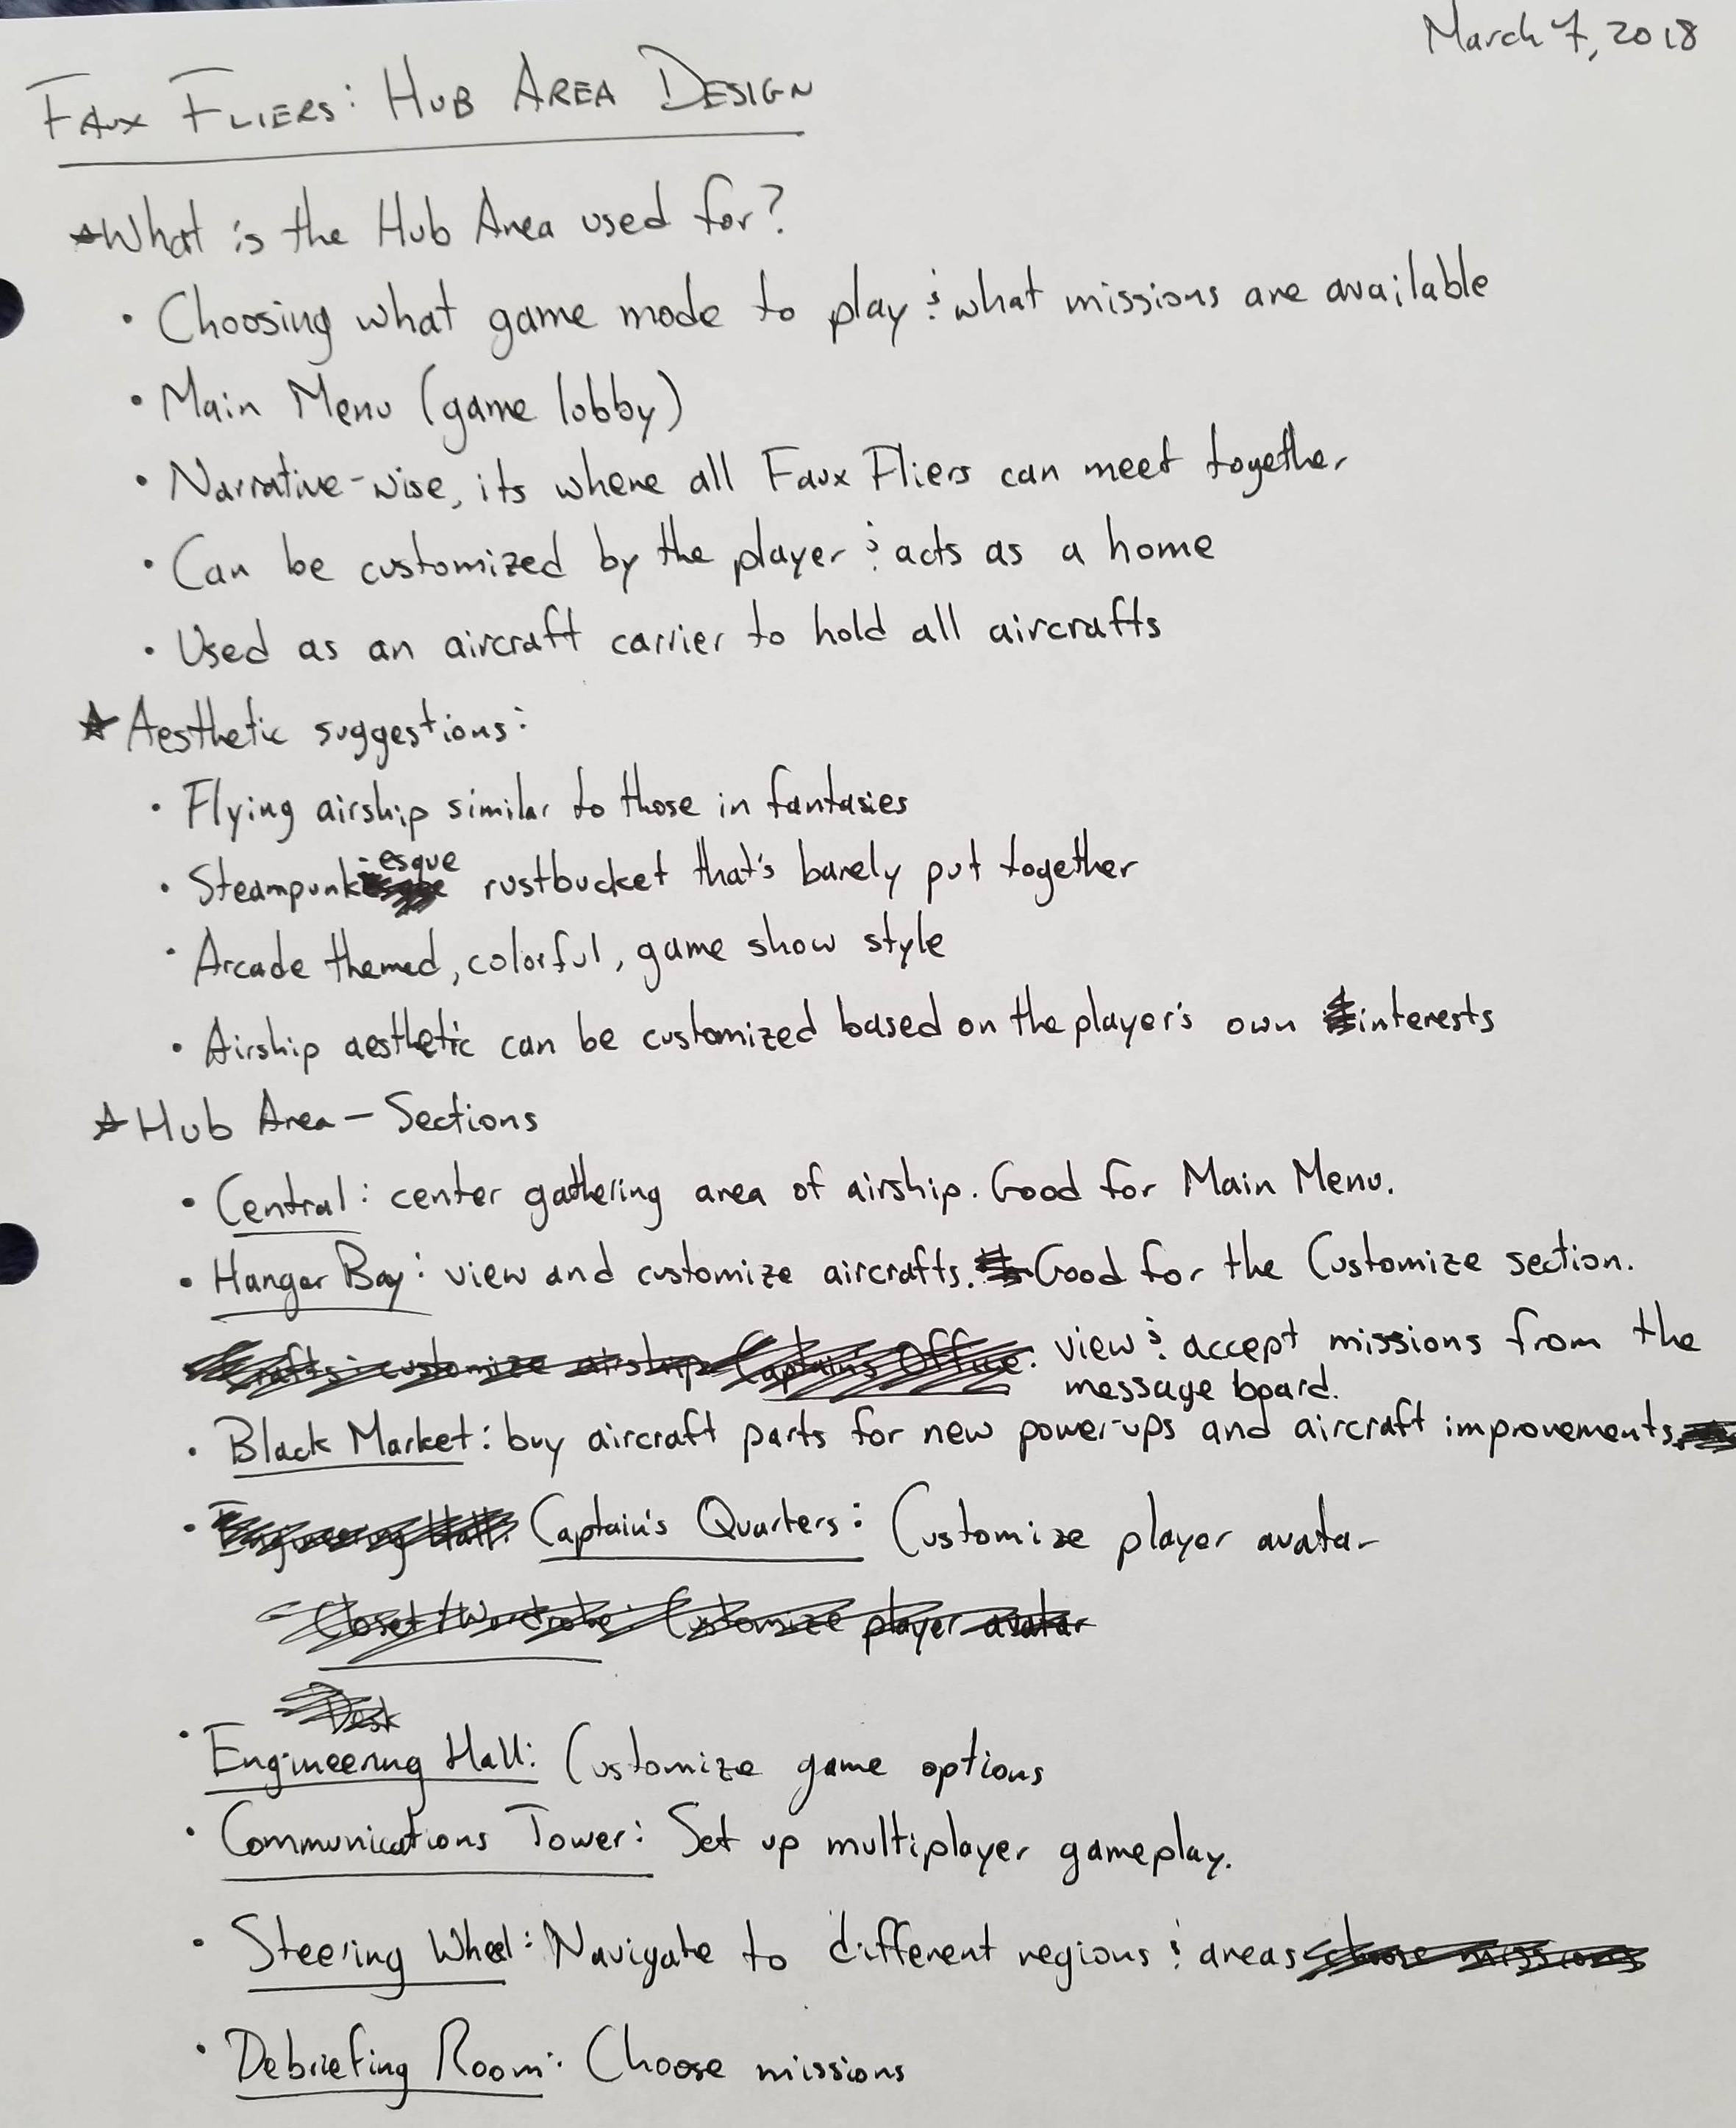 March 7, 2018
FAUX FLIERS: HUB AREA DESIGN
★What is the Hub Area used for?
• Choosing what game mode to play & what missions are available
• Main Menu (game lobby)
• Narrative-wise, its where all Faux Fliers can meet together
• Can be customized by the player & acts as a home
• Used as an aircraft carrier to hold all aircrafts
★ Aesthetic suggestions:
• Flying airship similar to those in fantasies
• Steampunk-esque rustbucket that's barely put together
• Arcade themed, colorful, game show style
• Airship aesthetic can be customized based on the player's own interests
★ Hub Area - Sections
• Central: center gathering area of airship. Good for Main Menu.
• Hanger Bay: view and customize aircrafts. Good for the Customize section.
Crafts: customize airship Captain's Office: view & accept missions from the
message board.
• Black Market: buy aircraft parts for new power-ups and aircraft improvements.
• Engineering Hall: Captain's Quarters: Customize player avatar
- Closet/Wardrobe: Customize player avatar
Desk
• Engineering Hall: Customize game options
• Communications Tower: Set up multiplayer gameplay.
• Steering Wheel: Navigate to different regions & areas choose missions
• Debriefing Room: Choose missions